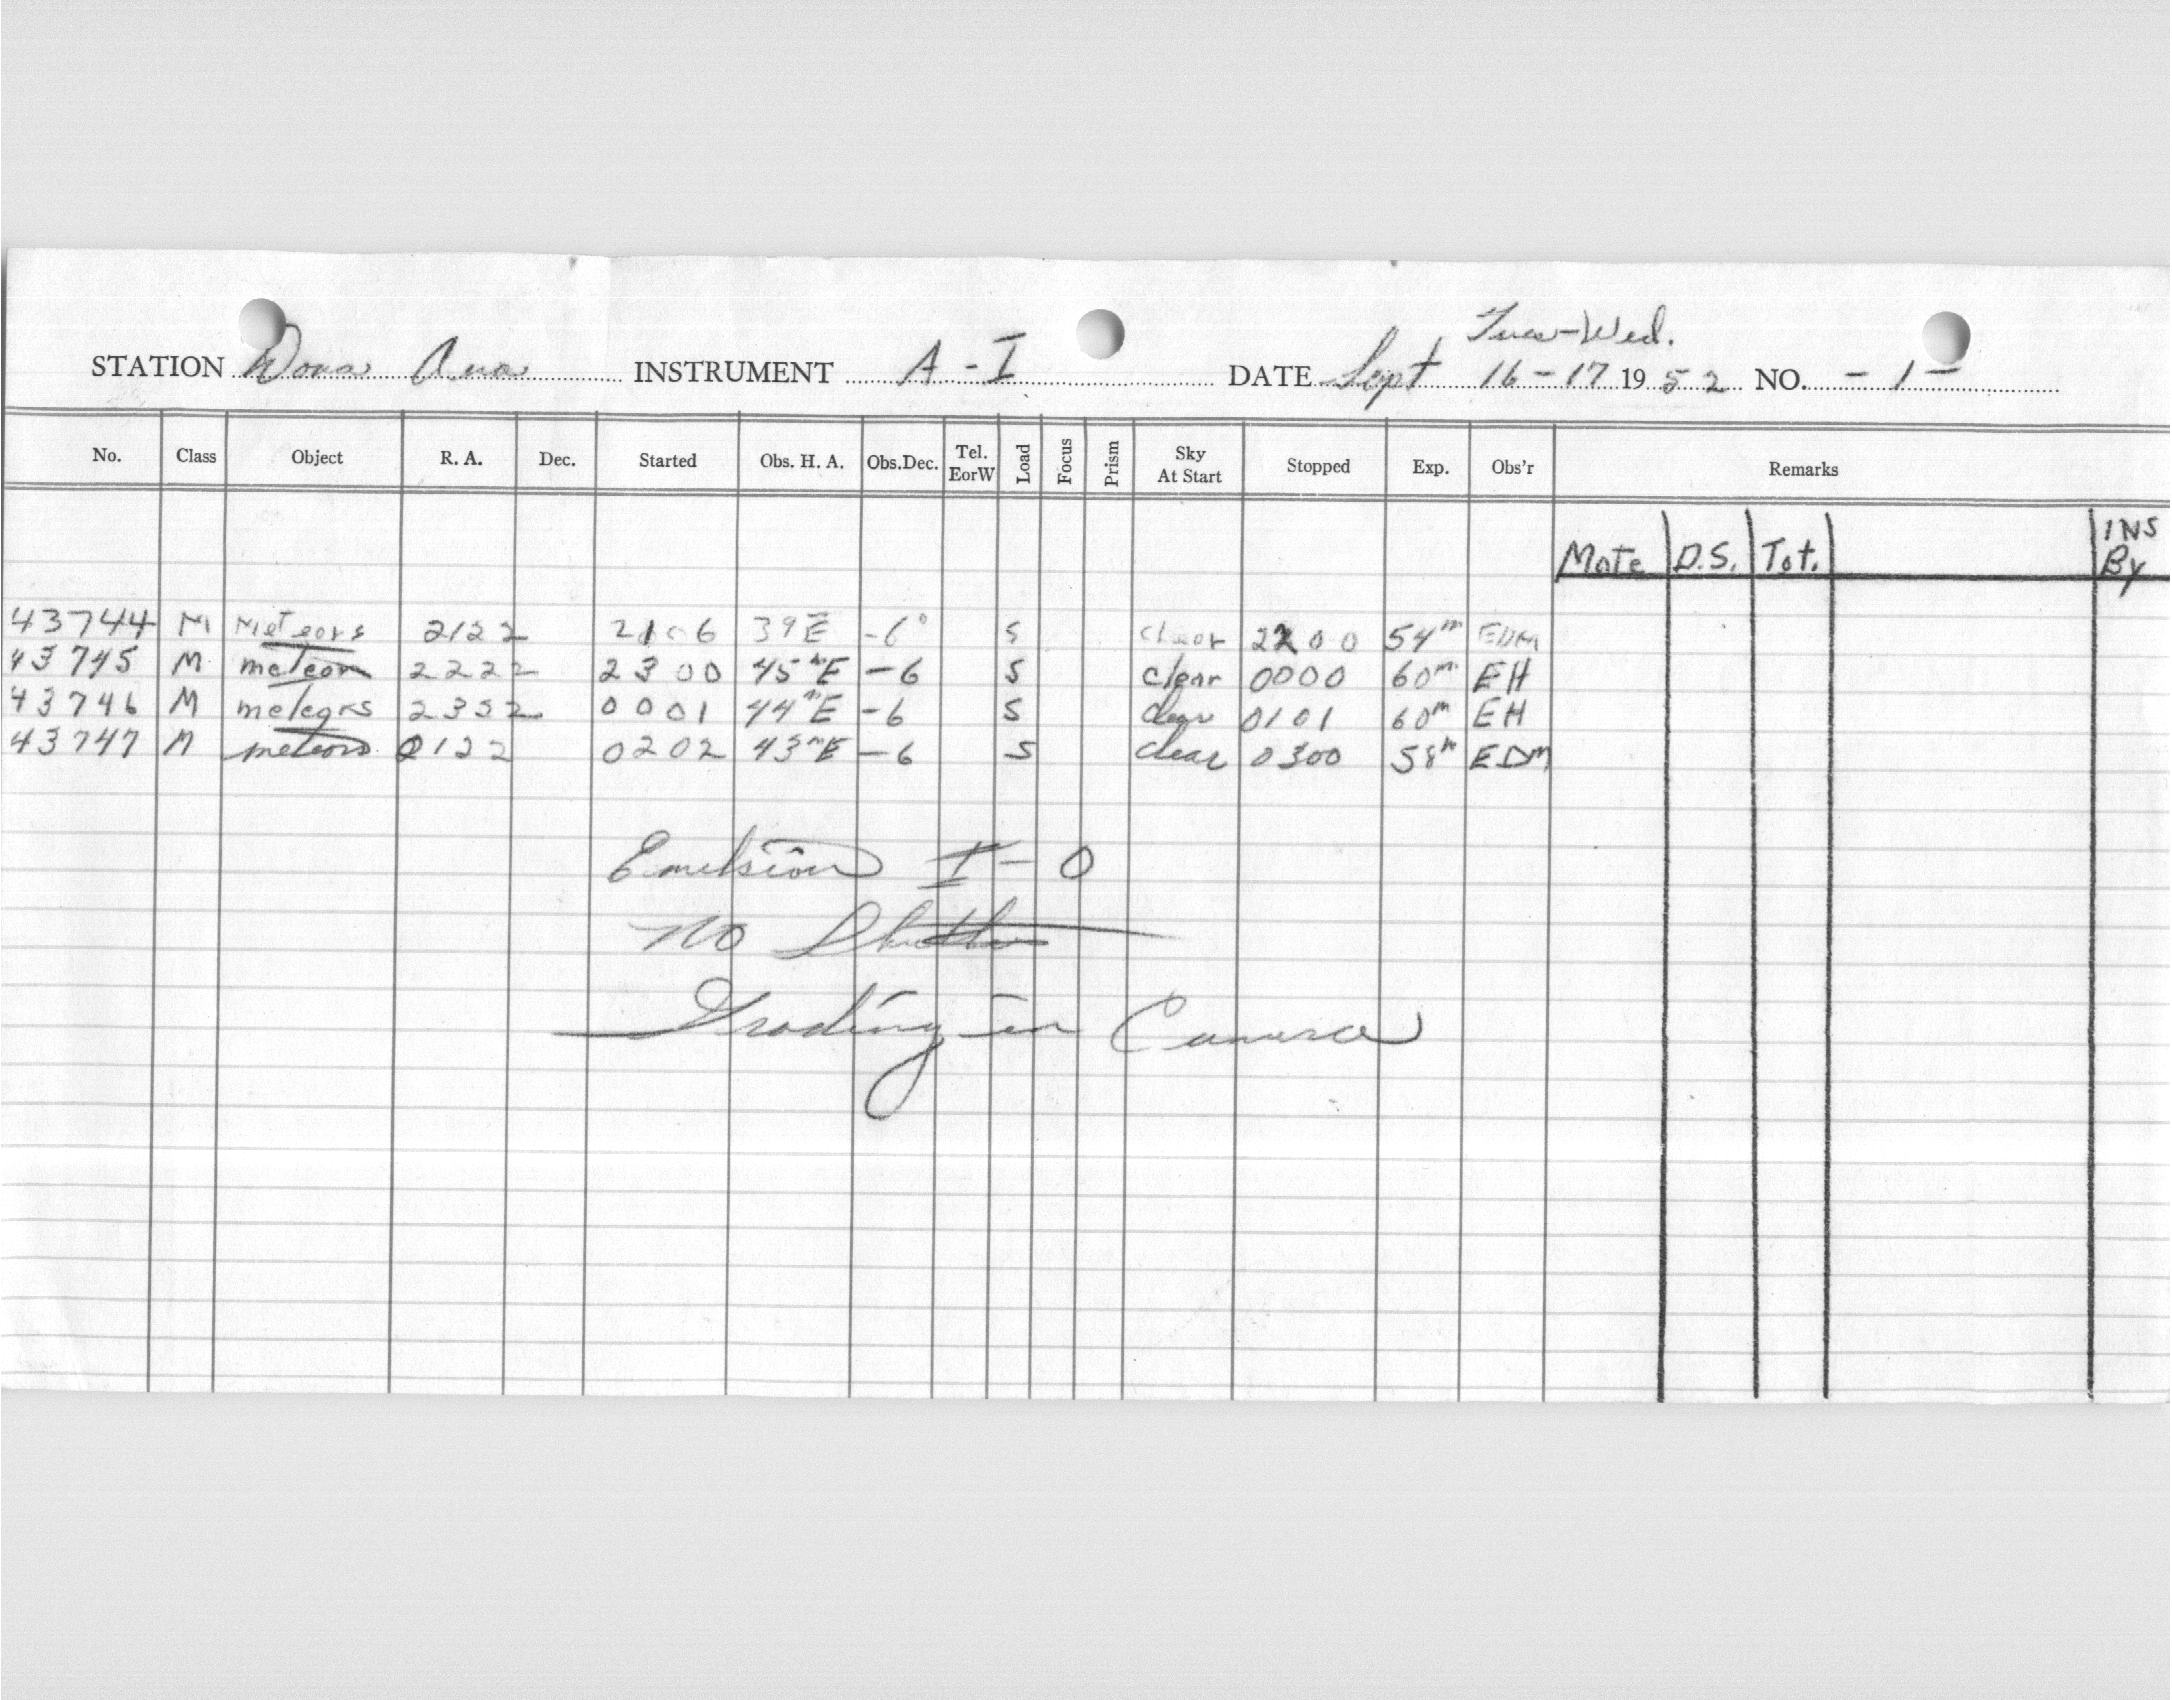 Tues-Wed.
STATION Dona Ana INSTRUMENT A-I DATE Sept 16-17 1952 NO. -1-
No. Class Object R. A. Dec. Started Obs. H. A. Obs.Dec. Tel. EorW Load Focus Prism Sky At Start Stopped Exp. Obs'r Remarks
Mote D.S. Tot. INS By
43744 M Meteors 2122 2106 39E -6° S clear 2200 54m EDM
43745 M meteors 2222 2300 45mE -6 S clear 0000 60m EH
43746 M meteors 2352 0001 44mE -6 S clear 0101 60m EH
43747 M meteors 0122 0202 43mE -6 S clear 0300 58m EDM
Emulsion I-O
No Shutter
Grading in Camera